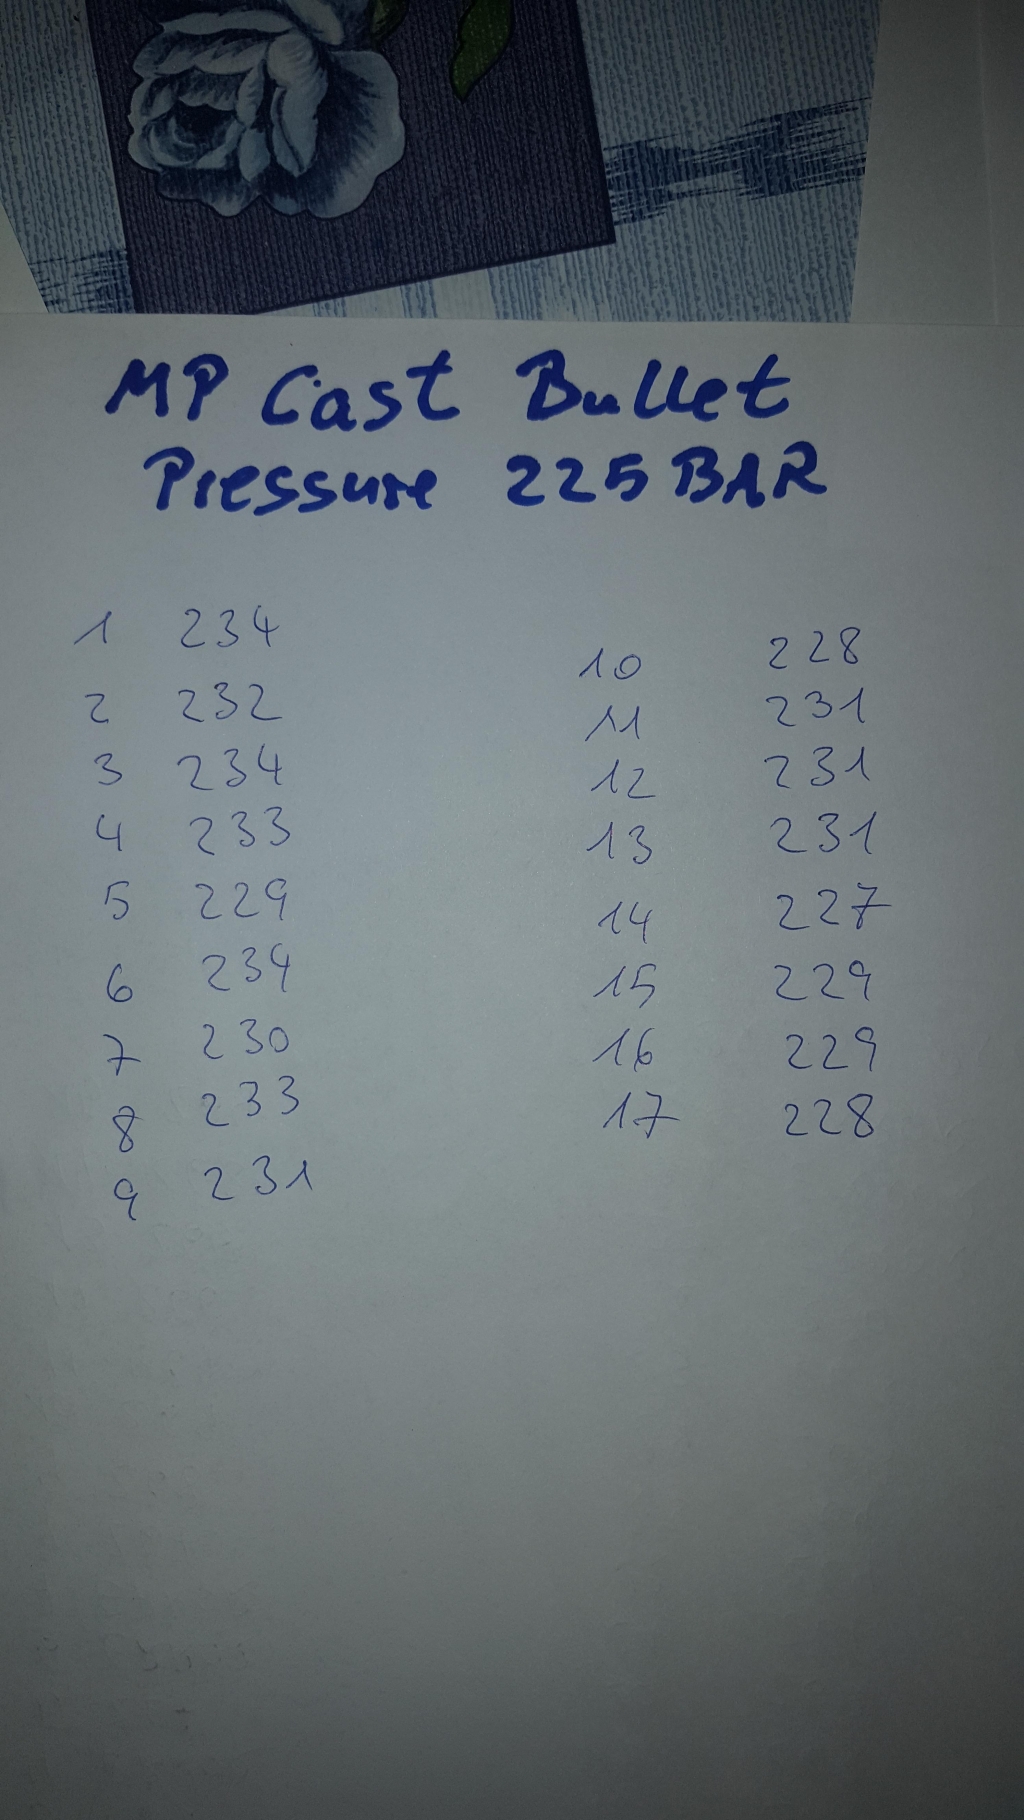 MP Cast Bullet
Pressure 225 BAR
1 234
2 232
3 234
4 233
5 229
6 234
7 230
8 233
9 231
10 228
11 231
12 231
13 231
14 227
15 229
16 229
17 228